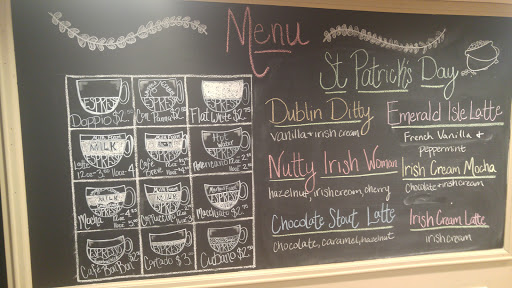 Menu
St Patrick's Day
ESPRESSO
Doppio $2
ESPRESSO
Con Panna $2
ESPRESSO
Flat White $2
MILK
ESPRESSO
Latte
12oz 3
16oz 4
MILK
ESPRESSO
Cafe Breve
12oz
16oz
Hot water
ESPRESSO
Americano
12oz
16oz
MILK
ESPRESSO
Mocha
12oz
16oz
MILK
ESPRESSO
Cappuccino
12oz
16oz
ESPRESSO
Macchiato $2
ESPRESSO
Cafe BonBon $2
ESPRESSO
Cortado $3
ESPRESSO
Cubano $2
Dublin Ditty
vanilla + irish cream
Nutty Irish Woman
hazelnut, irish cream, cherry
Chocolate Stout Latte
chocolate, caramel, hazelnut
Emerald Isle Latte
French Vanilla +
peppermint
Irish Cream Mocha
Chocolate + irish cream
Irish Cream Latte
irish cream